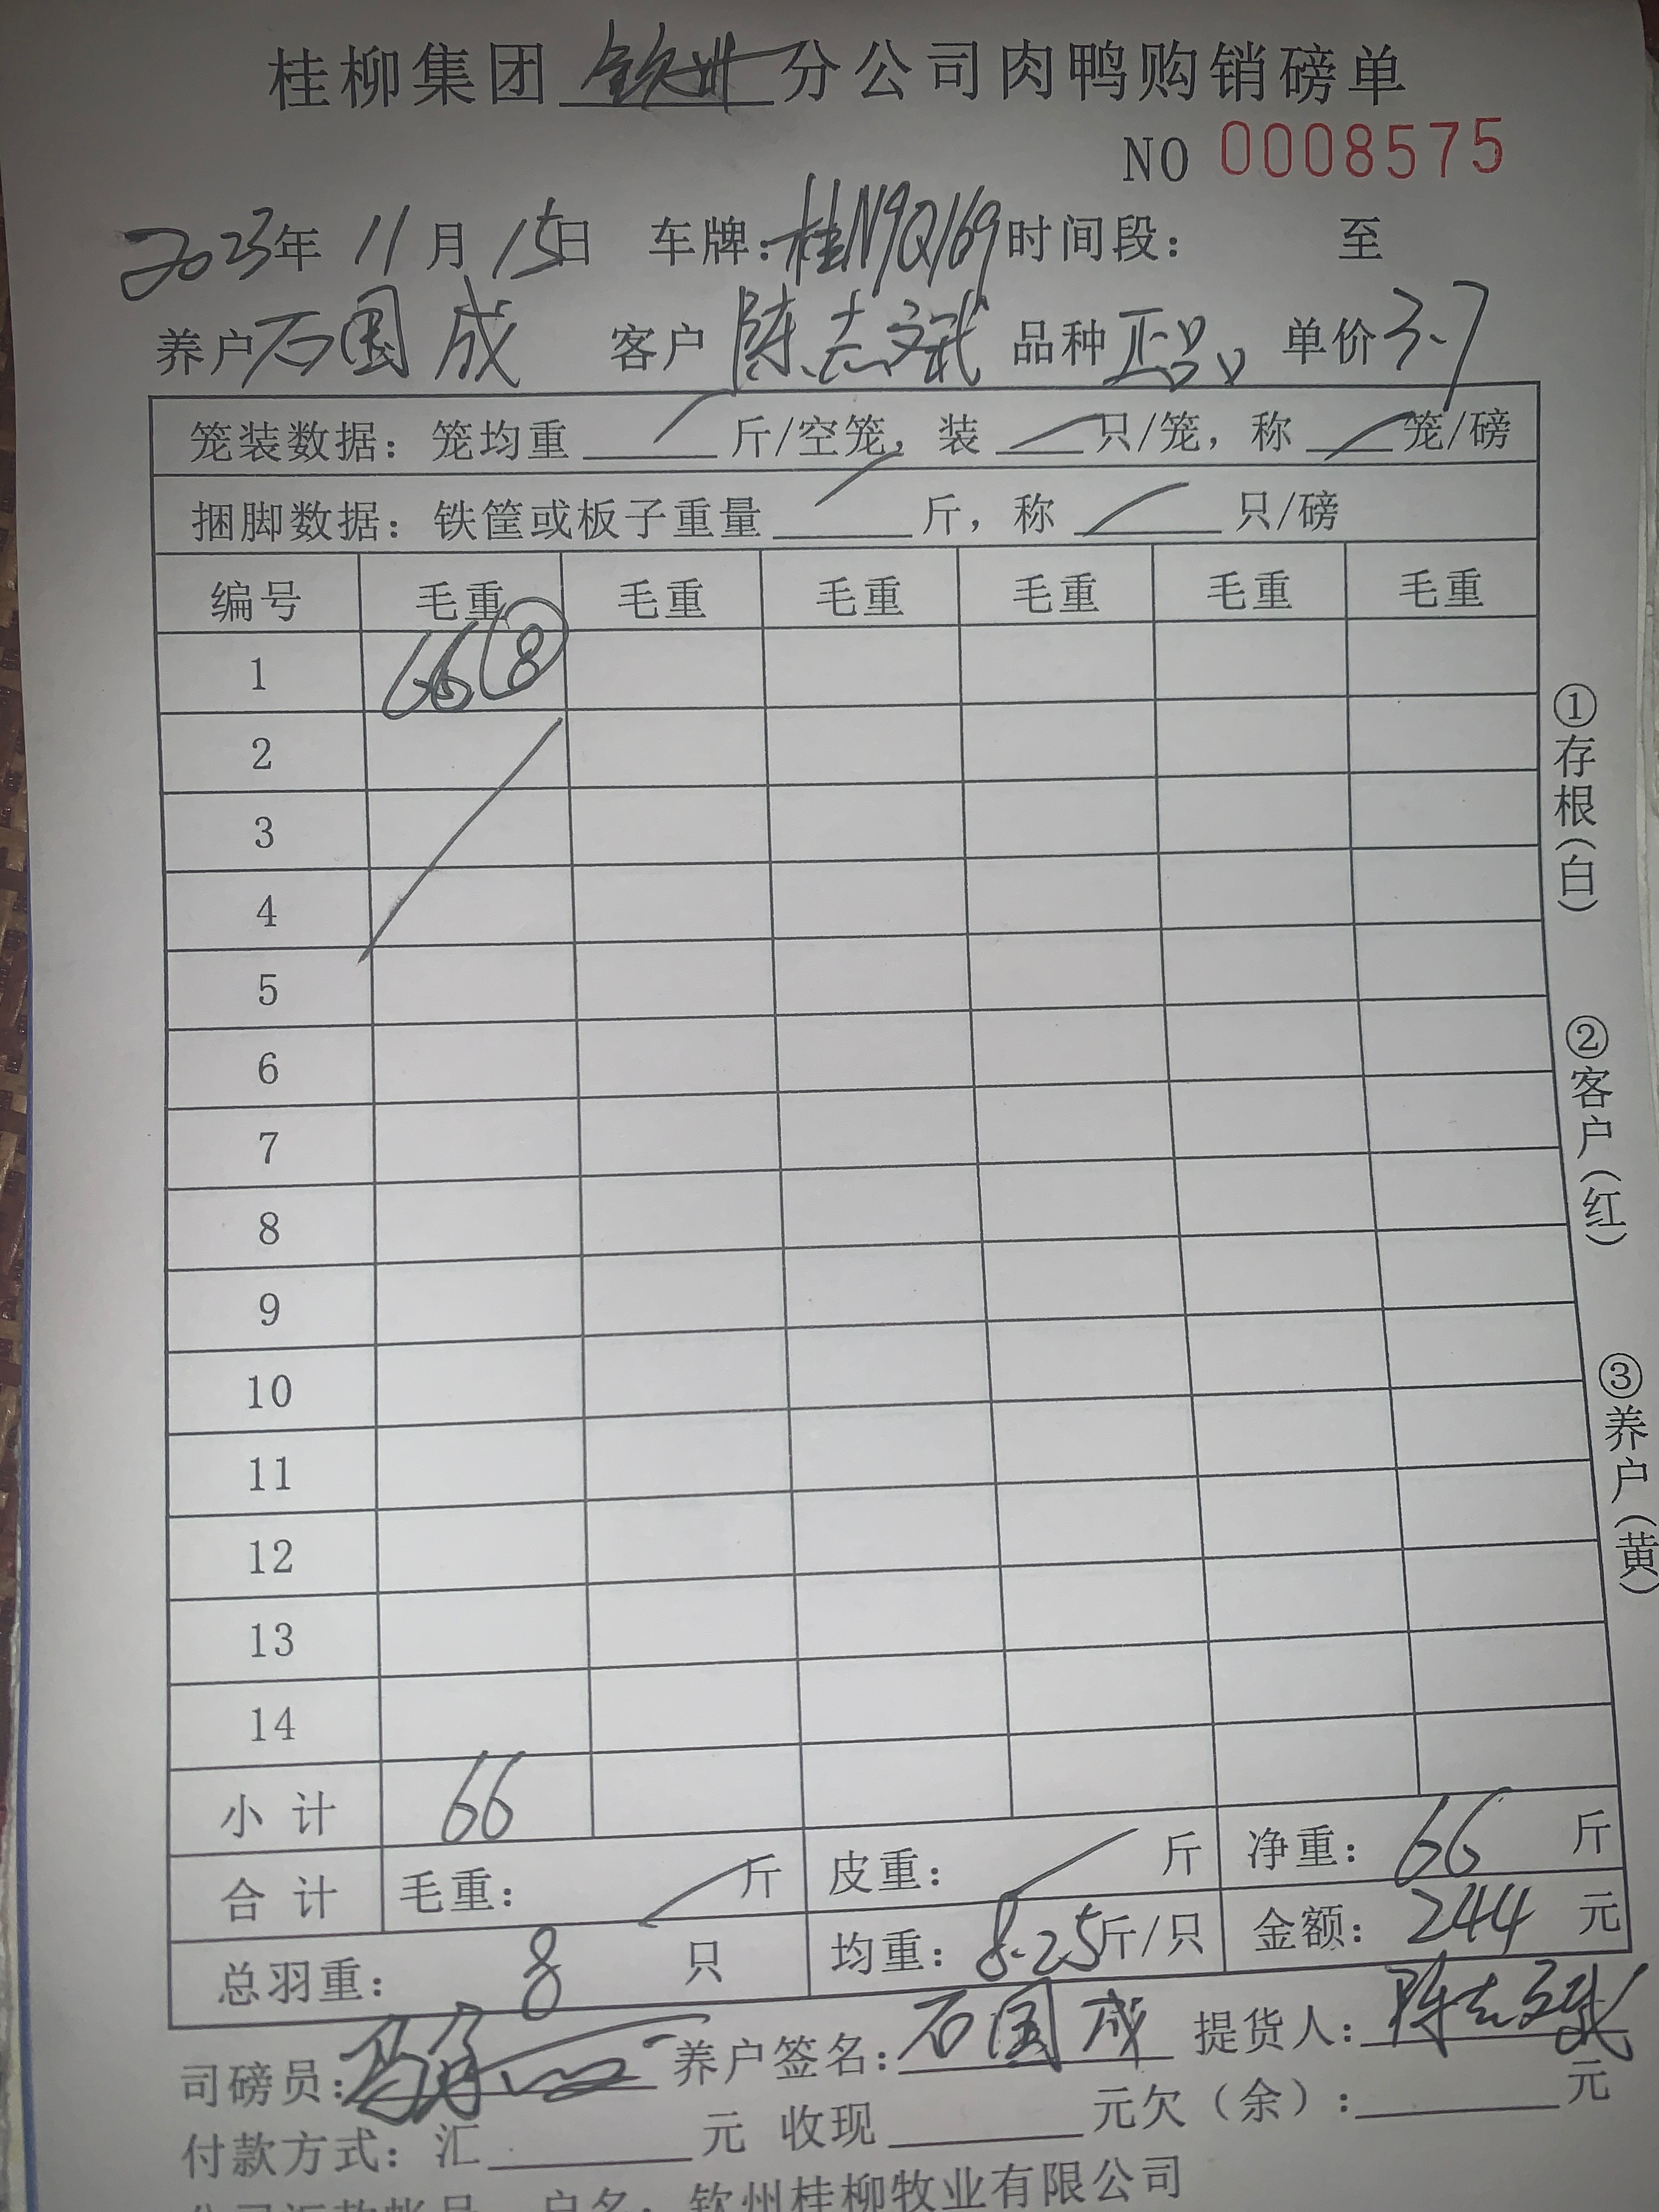 桂柳集团 钦州 分公司肉鸭购销磅单
NO 0008575
2023年 11月 15日 车牌:桂N9Q169 时间段: 至
养户 石国成 客户 陈志斌 品种 正品 单价 3.7
笼装数据: 笼均重 斤/空笼, 装 只/笼, 称 笼/磅
捆脚数据: 铁筐或板子重量 斤, 称 只/磅
编号 毛重 毛重 毛重 毛重 毛重 毛重
1 66 ⑧
2
3
4
5
6
7
8
9
10
11
12
13
14
小计 66
合计 毛重: 斤 皮重: 斤 净重: 66 斤
总羽重: 8 只 均重: 8.25 斤/只 金额: 244 元
司磅员: 养户签名: 石国成 提货人: 陈志斌
付款方式: 汇 元 收现 元欠(余): 元
户名: 钦州桂柳牧业有限公司
①存根(白)
②客户(红)
③养户(黄)